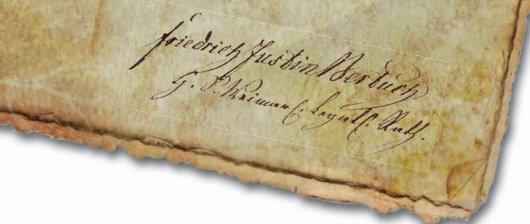 Friedrich Justin Bertuch
H. S. Weimar. Legat. Rath.